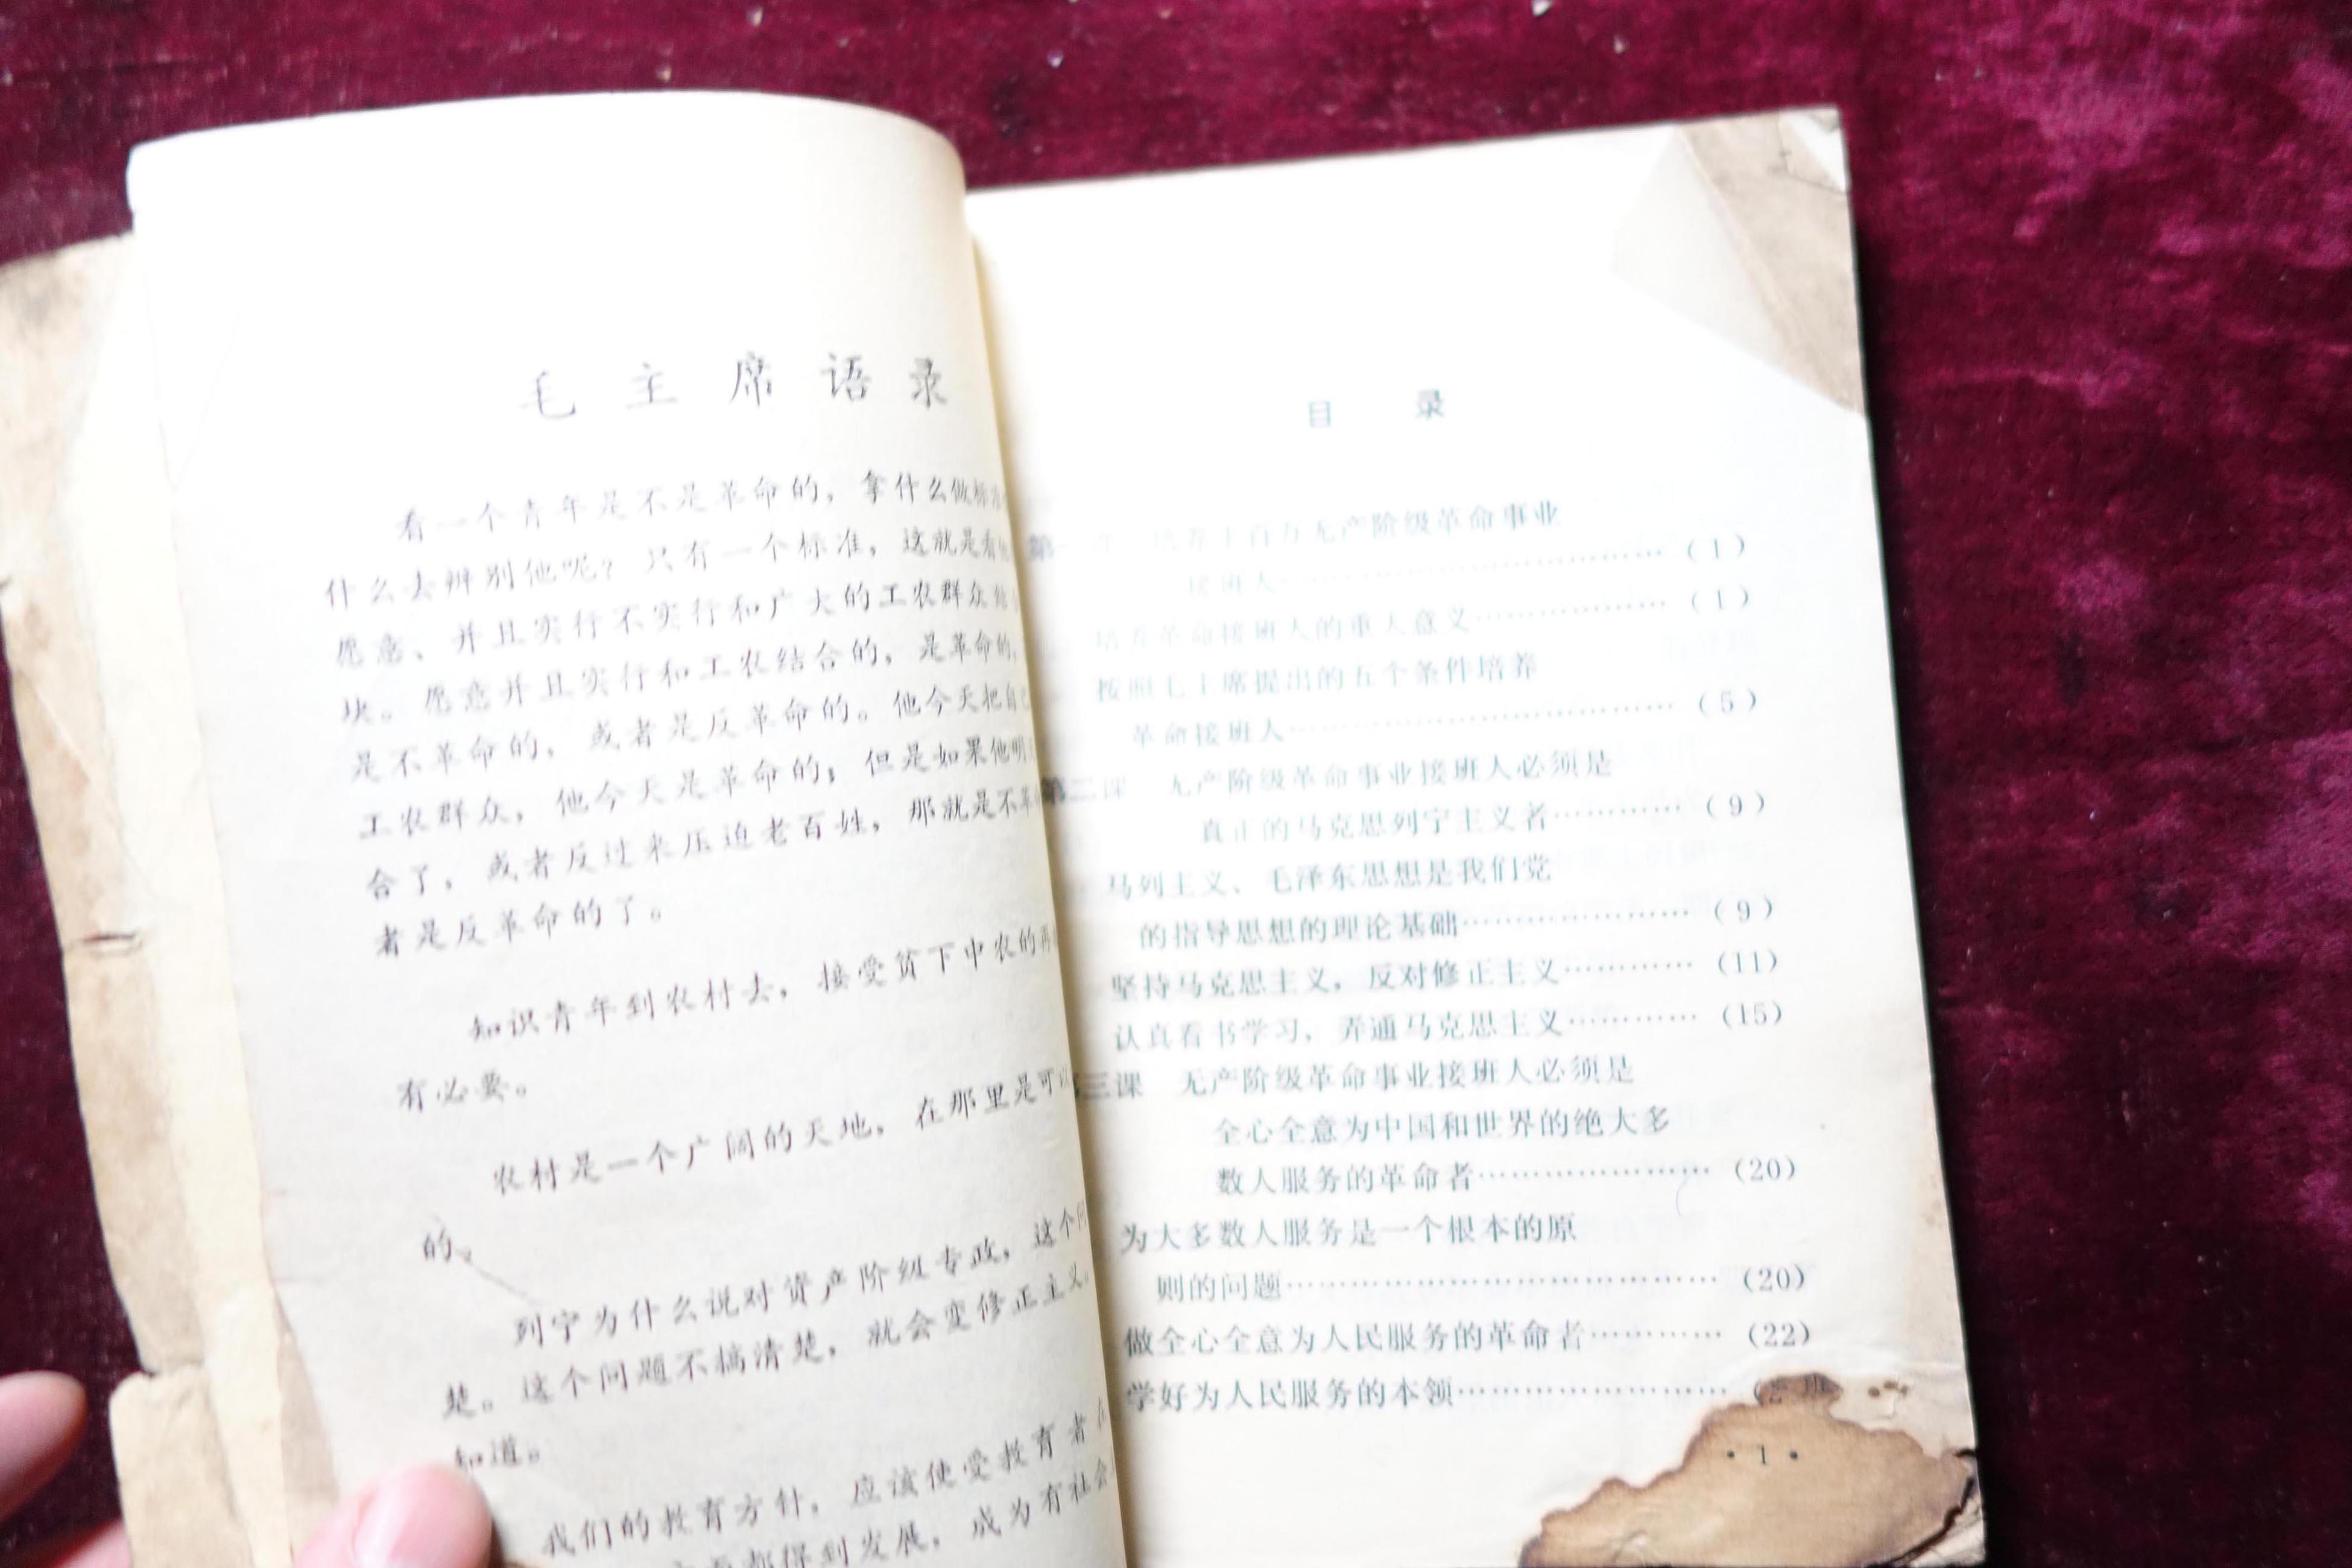 毛主席语录
看一个青年是不是革命的，拿什么做标准
什么去辨别他呢？只有一个标准，这就是看他
愿意、并且实行不实行和广大的工农群众结
块。愿意并且实行和工农结合的，是革命的，
是不革命的，或者是反革命的。他今天把自己
工农群众，他今天是革命的；但是如果他明
合了，或者反过来压迫老百姓，那就是不革
者是反革命的了。
知识青年到农村去，接受贫下中农的再
有必要。
农村是一个广阔的天地，在那里是可以
的。
列宁为什么说对资产阶级专政，这个问
楚。这个问题不搞清楚，就会变修正主义。
知道。
我们的教育方针，应该使受教育者在
都得到发展，成为有社会
目录
第一课 培养千百万无产阶级革命事业
接班人……（1）
培养革命接班人的重大意义……（1）
按照毛主席提出的五个条件培养
革命接班人……（5）
第二课 无产阶级革命事业接班人必须是
真正的马克思列宁主义者……（9）
马列主义、毛泽东思想是我们党
的指导思想的理论基础……（9）
坚持马克思主义，反对修正主义……（11）
认真看书学习，弄通马克思主义……（15）
三课 无产阶级革命事业接班人必须是
全心全意为中国和世界的绝大多
数人服务的革命者……（20）
为大多数人服务是一个根本的原
则的问题……（20）
做全心全意为人民服务的革命者……（22）
学好为人民服务的本领……
·1·